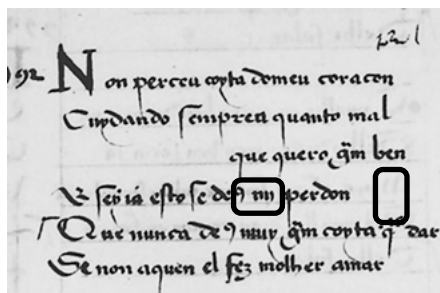 221
192 Non perceu coyta domeu coraçon
Cuydando sempreu quanto mal
que quero, gm̃ ben
E seỹiá esto se deꝯ mj perdon
Que nunca deꝯ muy gm̃ coyta q̃ dar
Se non aquen el fez molher amar